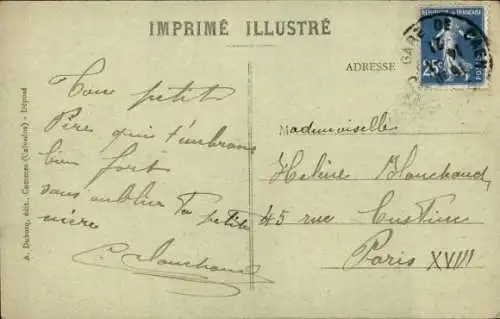 IMPRIMÉ ILLUSTRÉ
ADRESSE
RÉPUBLIQUE FRANÇAISE
25c
POSTES
GARE DE CAEN
Ton petit
Père qui t'embrasse
bien fort
sans oublier Ta petite
mère
Mademoiselle
Helène Blanchaud
45 rue Custine
Paris XVIII
A. Dubosq, édit., Caumont (Calvados) - Déposé